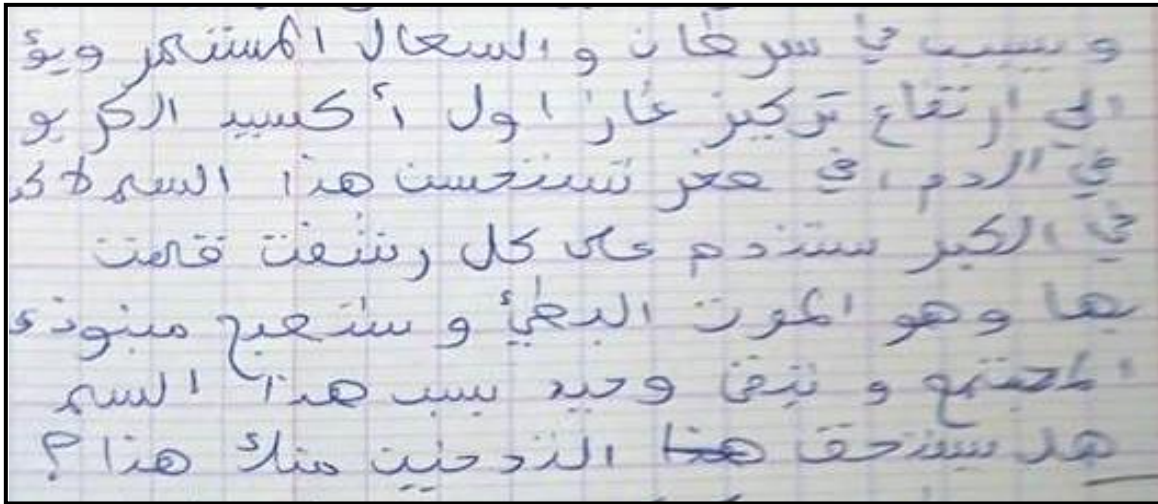 و يسبب في سرطان و السعال المستمر ويؤ
الى ارتفاع تركيز غاز اول أكسيد الكربو
في الدم، في صغر تستحسن هذا السم لاكـ
في الكبر ستندم على كل رشفت قمت
بها وهو الموت البطيئ و ستصبح منبوذ
المجتمع و تبقى وحيد بسبب هذا السم
هل يستحق هذا التدخين منك هذا؟